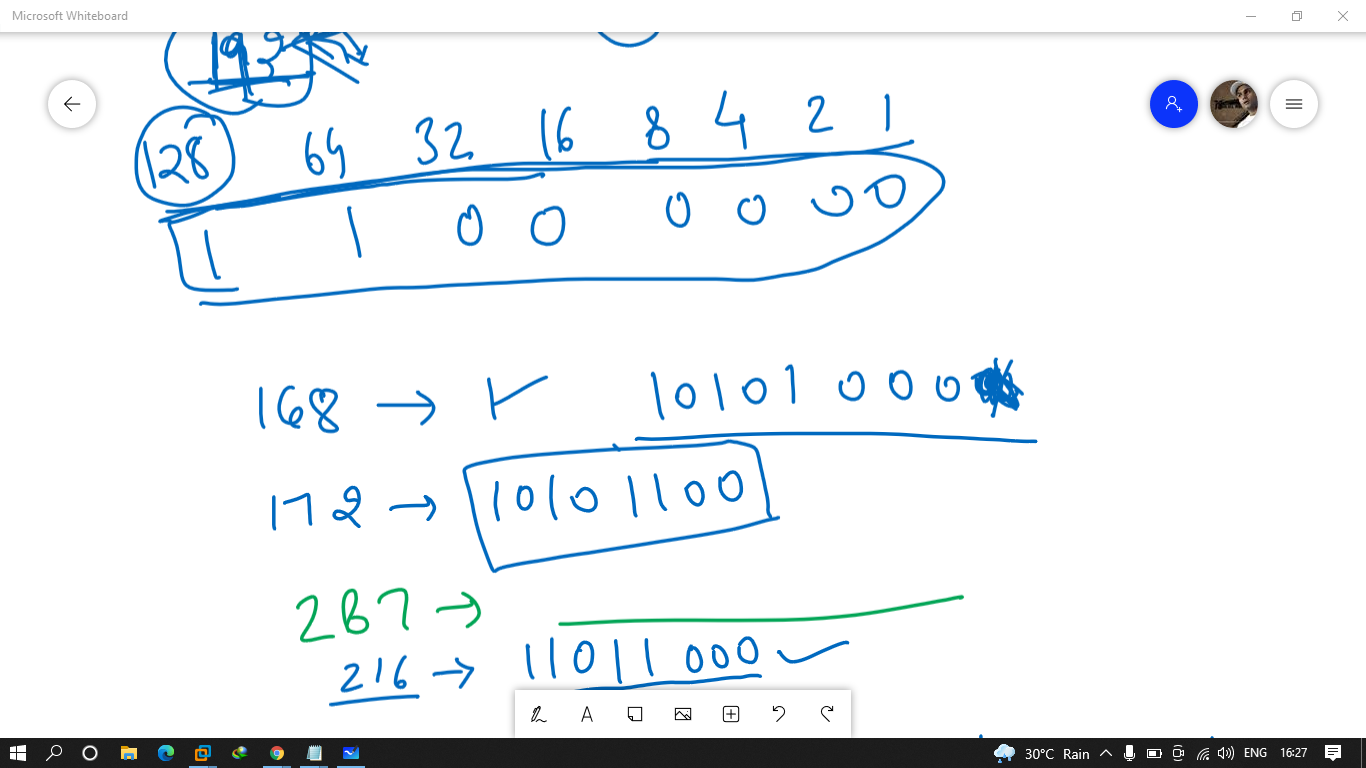 Microsoft Whiteboard
193
128 64 32 16 8 4 2 1
1 1 0 0 0 0 0 0
168 → 10101 000
172 → 10101100
287 →
216 → 11011 000
A
30°C Rain ENG 16:27